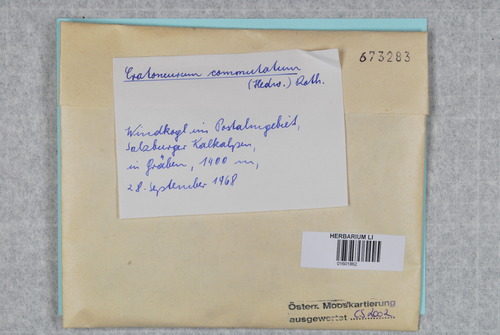 673283
Cratoneurum commutatum
(Hedw.) Roth.
Windkogl im Postalmgebiet,
Salzburger Kalkalpen,
in Gräben, 1400 m,
28. September 1968
HERBARIUM LI
Österr. Mooskartierung
ausgewertet CS 2002